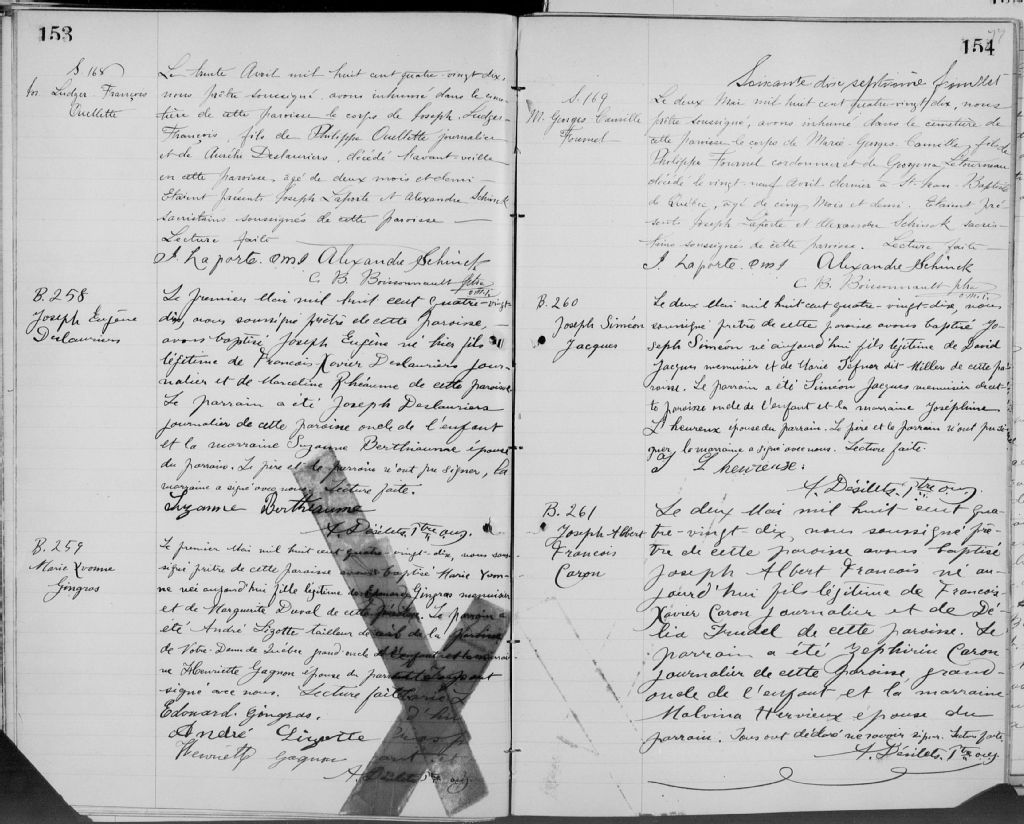 153
S. 168
Jos. Ludger François
Ouellette
Le trente Avril mil huit cent quatre-vingt dix,
nous prêtre soussigné, avons inhumé dans le cime-
tière de cette paroisse le corps de Joseph Ludger
François, fils de Philippe Ouellette journalier
et de Aurélie Deslauriers, décédé l'avant-veille
en cette paroisse, âgé de deux mois et demi
Etaient présents Joseph Laporte et Alexandre Schinck
sacristains soussignés de cette paroisse
Lecture faite
J. Laporte. omi Alexandre Schinck
C. B. Boissonnault ptre
o.m.i.
B. 258
Joseph Eugène
Deslauriers
Le premier Mai mil huit cent quatre-vingt-
dix, nous soussigné prêtre de cette paroisse,
avons baptisé Joseph Eugène né hier fils
légitime de Francois Xavier Deslauriers jour-
nalier et de Marceline Rhéaume de cette paroisse
Le parrain a été Joseph Deslauriers
journalier de cette paroisse oncle de l'enfant
et la marraine Suzanne Berthiaume épouse
du parrain. Le père et le parrain n'ont pu signer, la
marraine a signé avec nous. Lecture faite.
Suzanne Berthiaume
A. Désilets, Ptre
B. 259
Marie Yvonne
Gingras
Le premier Mai mil huit cent quatre-vingt-dix, nous sous-
signé prêtre de cette paroisse avons baptisé Marie Yvon-
ne née aujourd'hui fille légitime Gingras menuisier
et de Marguerite Duval de cette paroisse. Le parrain a
été André Lizotte tailleur de la paroisse
de Notre-Dame de Québec grand-oncle de l'enfant et la marrai-
ne Henriette Gagnon épouse du parrain
signé avec nous. Lecture faite
Edouard Gingras.
André Lizotte
Henriette Gagnon
A. Désilets Ptre
154
77
Soixante dix septième feuillet
S. 169
M. Georges Camille
Fournel
Le deux Mai mil huit cent quatre-vingt dix, nous
prêtre soussigné, avons inhumé dans le cimetière de
cette paroisse le corps de Marie-Georges-Camille, fils de
Philippe Fournel cordonnier et de Georgina Létourneau
décédé le vingt neuf Avril dernier à St-Jean-Baptiste
de Québec, âgé de cinq mois et demi. Etaient pré-
sents Joseph Laporte et Alexandre Schinck sacris-
tains soussignés de cette paroisse. Lecture faite
J. Laporte omi Alexandre Schinck
C. B. Boissonnault ptre
o.m.i.
B. 260
Joseph Siméon
Jacques
Le deux Mai mil huit cent quatre-vingt-dix, nous
soussigné prêtre de cette paroisse avons baptisé Jo-
seph Siméon né aujourd'hui fils légitime de David
Jacques menuisier et de Marie dit Miller de cette pa-
roisse. Le parrain a été Siméon Jacques menuisier de cet-
te paroisse oncle de l'enfant et la marraine Joséphine
L'heureux épouse du parrain. Le père et le parrain n'ont pu si-
gner, la marraine a signé avec nous. Lecture faite.
J L'heureuse.
A. Désilets, Ptre
B. 261
Joseph Albert
Francois
Caron
Le deux Mai mil huit cent qua-
tre-vingt dix, nous soussigné prê-
tre de cette paroisse avons baptisé
Joseph Albert Francois né au-
jourd'hui fils légitime de Francois
Xavier Caron journalier et de Dé-
lia de cette paroisse. Le
parrain a été Zéphirin Caron
journalier de cette paroisse grand-
oncle de l'enfant et la marraine
Malvina Hervieux épouse du
parrain. Tous ont déclaré ne savoir signer. Lecture faite.
A. Désilets, Ptre